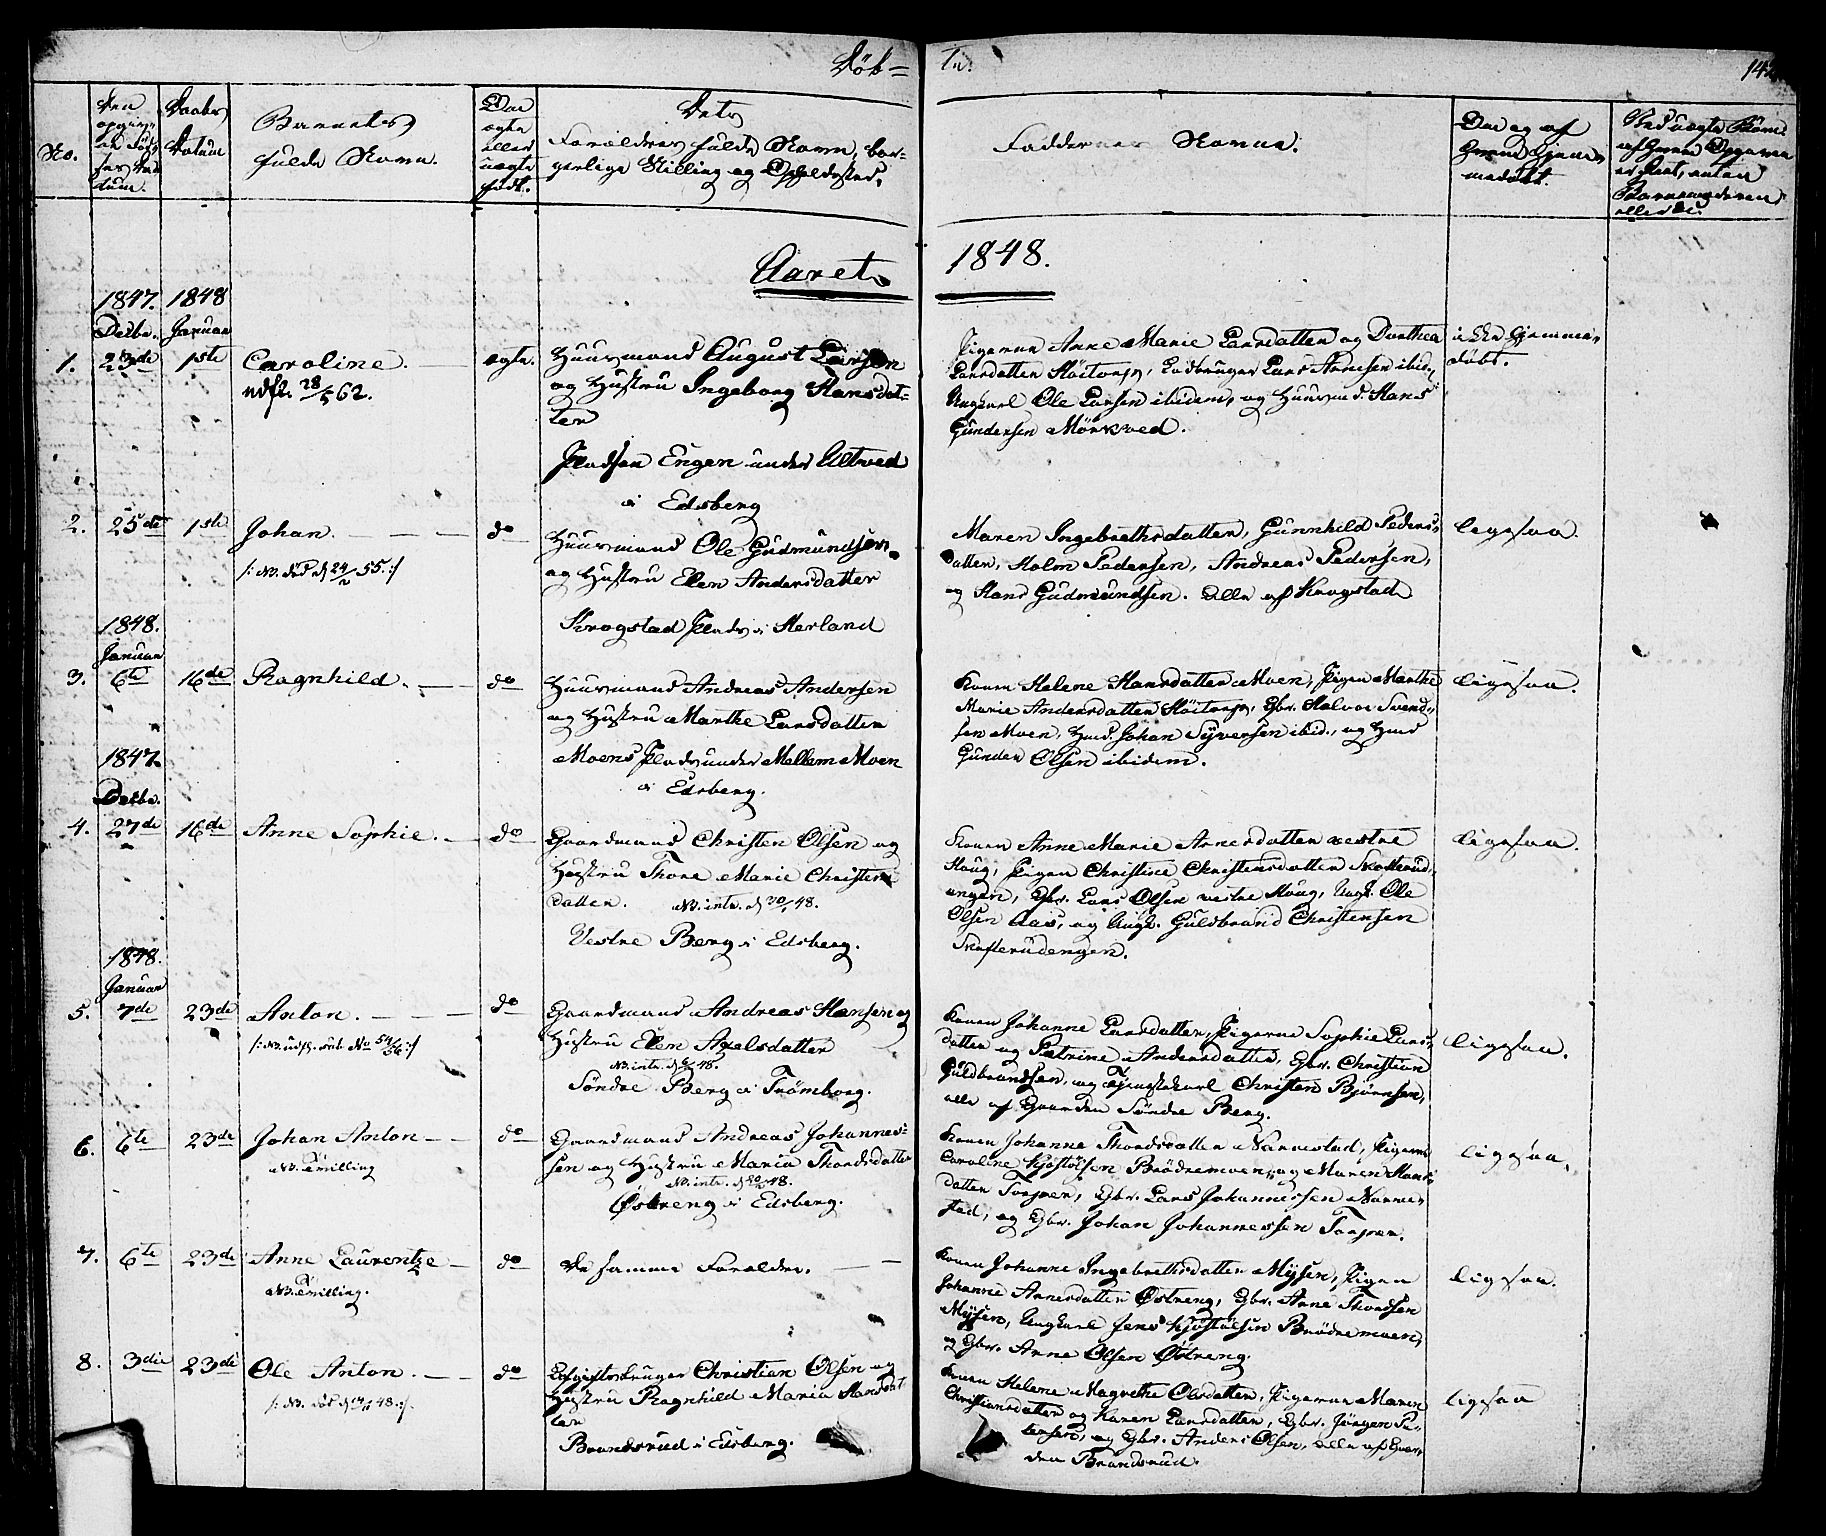 Döb=
te.
No.
Den opgivne Födsels Datum.
Daabs Datum
Barnets fulde Navn.
Om ægte eller uægte født.
Dets Forældres fulde Navn, borgerlige Stilling og Opholdssted.
Faddernes Navne.
Om og af hvem hjemmedøbt.
Aaret 1848.
1847. 1848
Decbr. Januar
1. 23de 1ste Caroline. ægte.
Huusmand August Larsen
og Hustru Ingeborg Hansdat-
ter
Pladsen Engen under Ultved
i Edsberg
Pigerne Anne Marie Larsdatter og Dorthea
Larsdatter Höitorp, Ladbruger Lars Arnesen ibid.,
Ungkarl Ole Larsen ibidem, og Huusmd. Hans
Gundersen Mörkved.
i Kn hjemme-
døbt.
udfl. 28/5 62.
2. 25de 1ste Johan. do
/: NB. død d 24/2 55 :/
Huusmand Ole Gudmundsen
og Hustru Elen Andersdatter
Krogstad Plads i Herland
Maren Ingebrethsdatter, Gunnhild Peders-
datter, Holm Pedersen, Andreas Pedersen,
og Hans Gudmundsen. Alle af Krogstad
ligesaa
1848.
Januar
3. 6te 16de Ragnhild. do
Huusmand Andreas Andersen
og Hustru Marthe Larsdatter
Moens Plads under Mellem Moen
i Edsberg.
Konen Helene Hansdatter Moen, Pigen Marthe
Marie Andersdatter Höitorp, Gbr. Halvor Svend-
sen Moen, Hmd. Johan Syversen ibid., og Hmd
Gunder Olsen ibidem.
ligesaa.
1847.
Decbr.
4. 27de 16de Anne Sophie. do
Gaardmand Christen Olsen og
Hustru Thore Marie Christens
datter. NB. intr. d 30/1 48.
Vestre Berg i Edsberg.
Konen Anne Marie Arnesdatter vestre
Houg, Pigen Christine Christensdatter Skofterud-
engen, Gbr. Lars Olsen vestre Houg, Ungk. Ole
Olsen Aas, og Ungk. Guldbrand Christensen
Skofterudengen.
ligesaa.
1848.
Januar
5. 7de 23de Anton. do
Gaardmand Andreas Hansen og
Hustru Elen Axelsdatter
Söndre Berg i Trömborg.
Konen Johanne Larsdatter, Pigerne Sophie Lars-
datter og Petrine Andersdatter, Gbr. Christian
Guldbrandsen, og Tjenestekarl Christen Björnsen,
alle af Gaarden Söndre Berg.
ligesaa.
6. 6te 23de Johan Anton do
NB. Tvilling
Gaardmand Andreas Johannes-
sen og Hustru Maria Thordsdatter
Østreng i Edsberg.
Konen Johanne Thordsdatter Narvestad, Pigerne
Caroline Kjöstolsen Brödremoen, og Maren Hans-
datter Torper, Gbr. Lars Johannessen Narve-
stad, og Gbr. Johan Johannessen Torper.
ligesaa.
7. 6te 23de Anne Laurentze do
NB. Tvilling.
De samme Forældre.
Konen Johanne Ingebrethsdatter Mysen, Pigen
Johanne Arnesdatter Østreng, Gbr. Arne Thordsen
Mysen, Ungkarl Jens Kjöstolsen Brödremoen,
og Gbr. Arne Olsen Østreng.
ligesaa.
8. 3die 23de Ole Anton. do
Christian Olsen og
Hustru Ragnhild Maria Hansdat
ter
Brandsrud i Edsberg.
Konen Helene Magrethe Olsdatter, Pigerne Maren
Christiansdatter og Karen Larsdatter, Gbr. Jörgen Pe-
tersen, og Gbr. Anders Olsen, Alle af Gaar-
den Brandsrud.
ligesaa